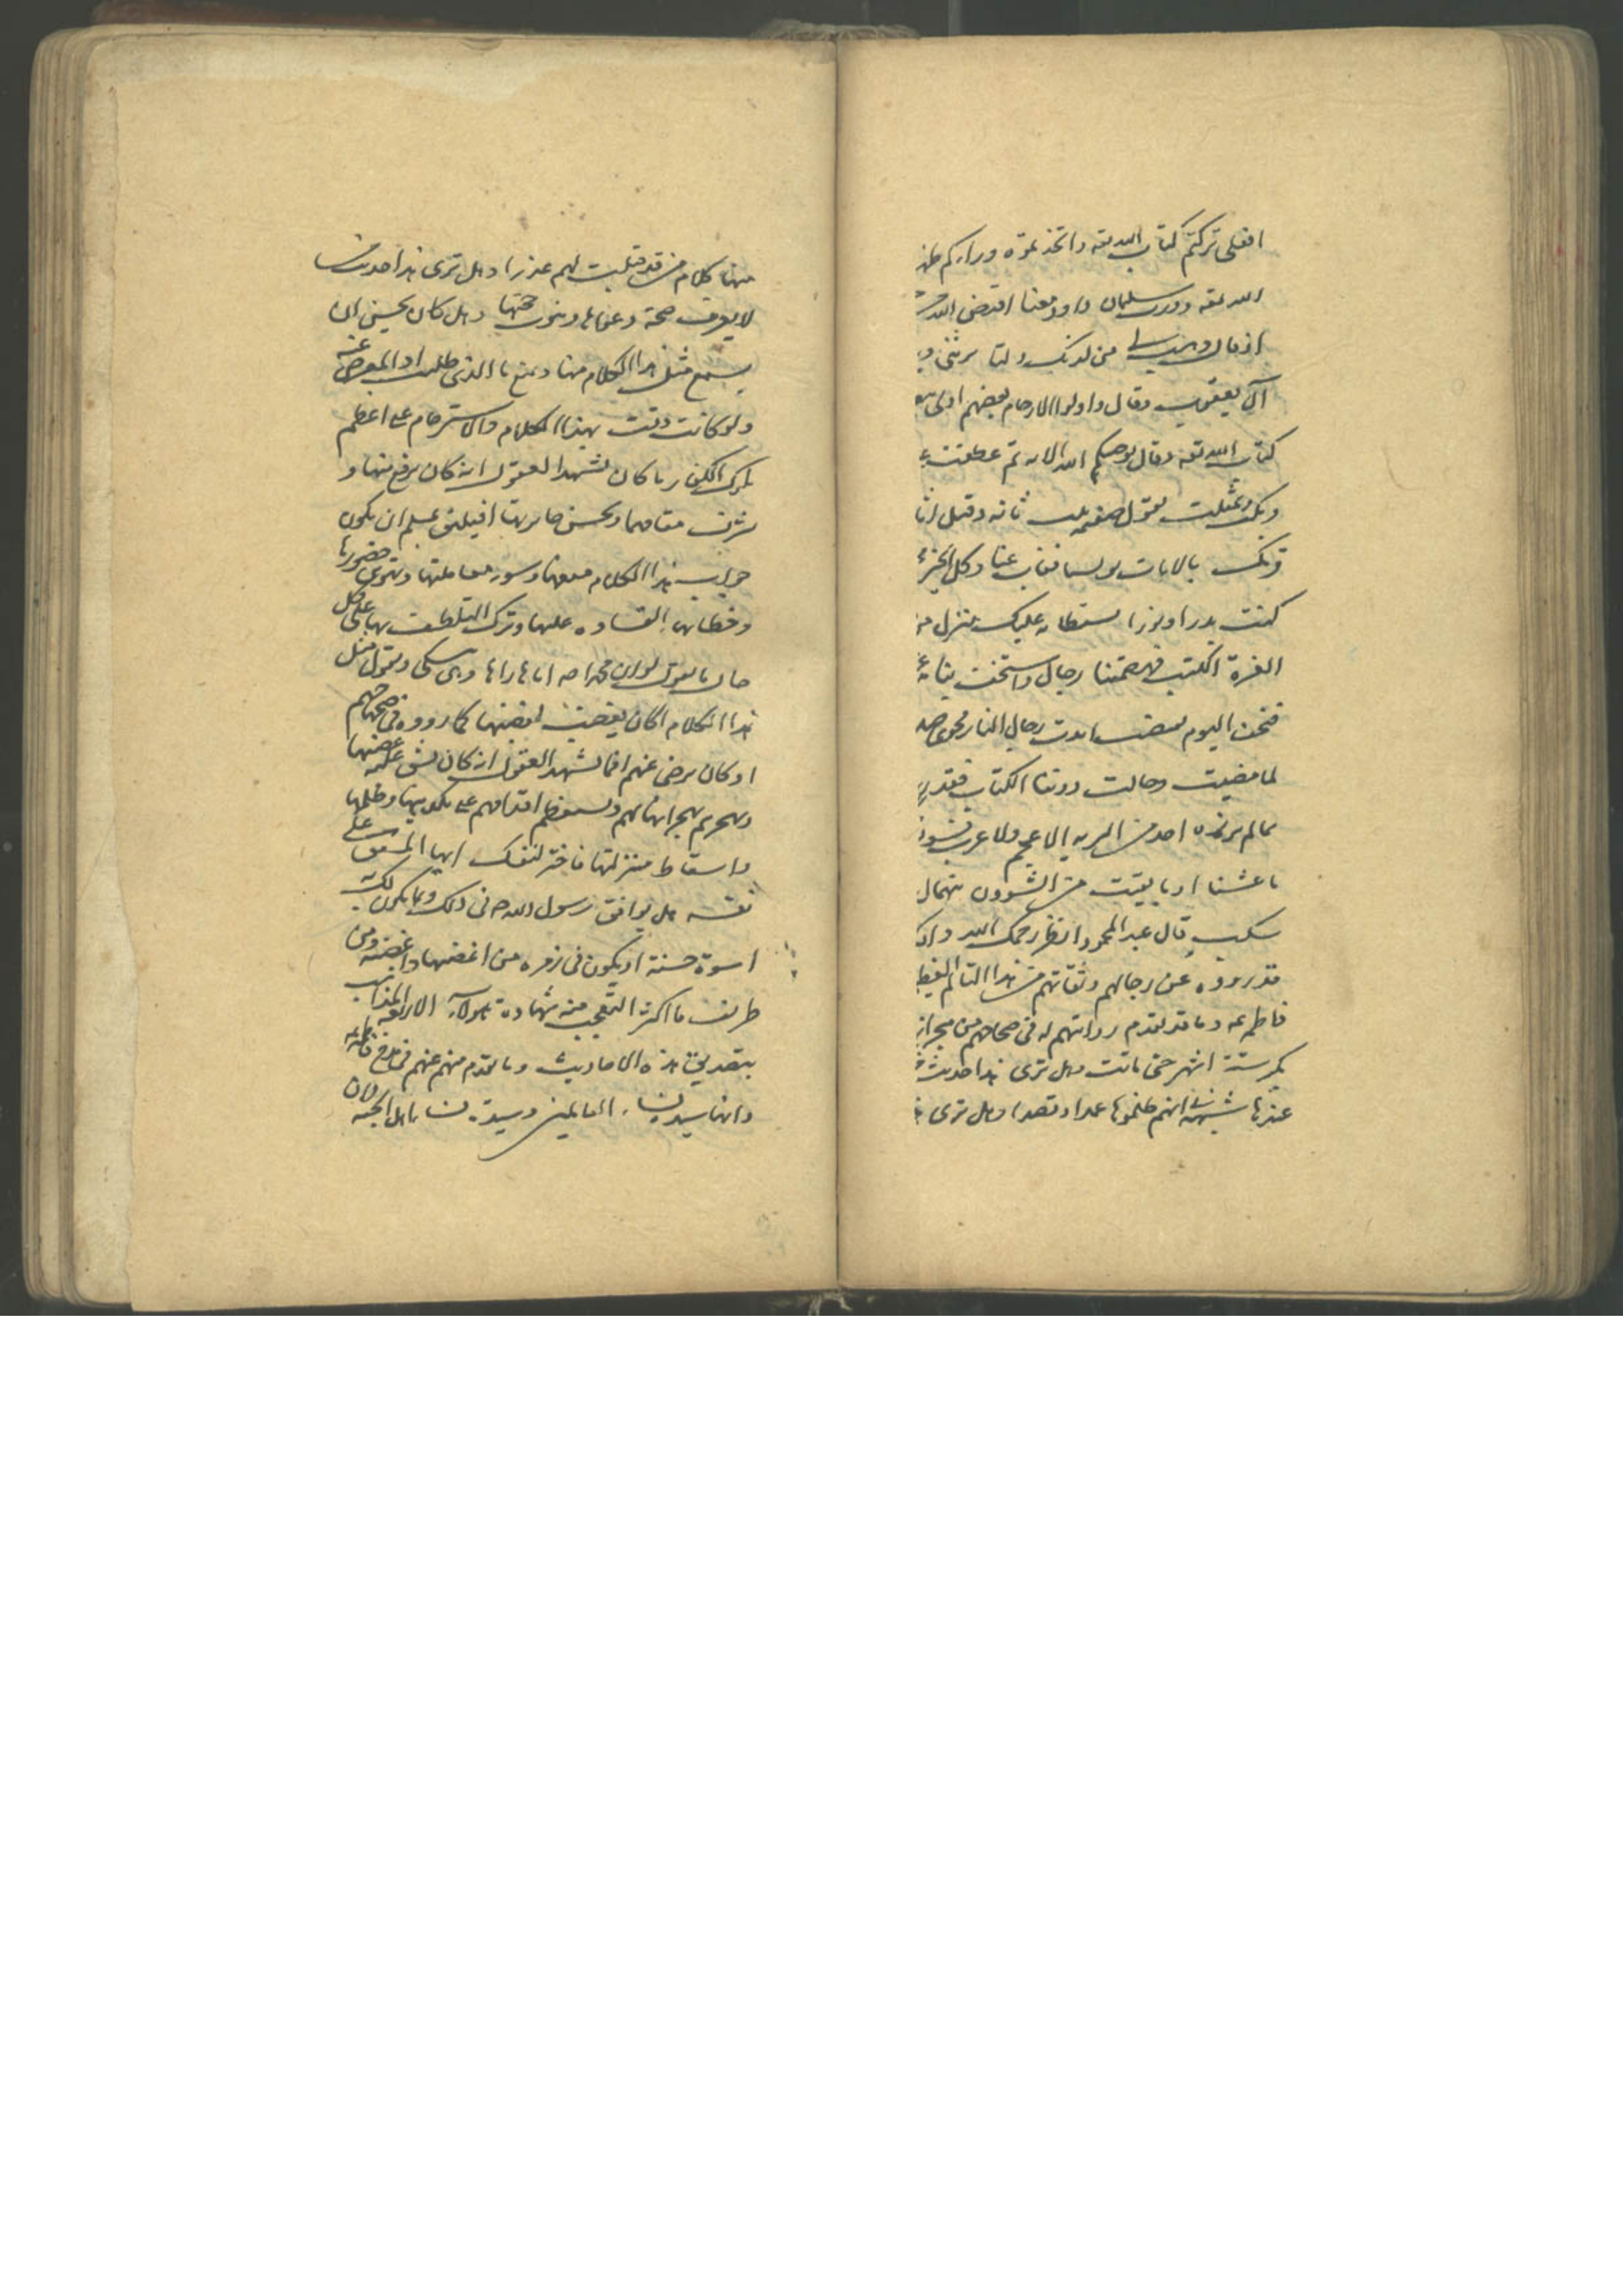 افعلى تركتم كتاب الله تعه واتخذتموه وراءكم
الله تعه وورث سليمان داود
اذ قال رب هب لى من لدنك وليا يرثنى و
آل يعقوب وقال واولوا الارحام بعضهم اولى
كتاب الله تعه وقال يوصيكم الله الايه ثم عطفت
وبكت وتمثلت بقول صفيه بنت اثاثه وقيل
قربك بالايات يونسنا فغاب عنا وكل الخير
كنت بدرا ونورا يستضاء به عليك ينزل من
العزة الكتب فهضمتنا رجال واستخف بنا
فنحن اليوم نغتصب ابدت رجال لنا نجوى
لما مضيت وحالت دونك الكتب فقد
بما لم يرزه احد من البريه لا عجم ولا عرب فسوف
ما عشنا او ما بقيت من الشؤون بتهمال
سكب قال عبد المحمود انظر رحمك الله
قد رووه عن رجالهم وثقاتهم من هذا التالم
فاطمه وما قد تقدم روايتهم له فى صحاحهم من هجران
بكر ستة اشهر حتى ماتت وهل ترى هذا حديث
عندها شبهة فى انهم ظلموها عمدا وقصدا وهل ترى
منها كلام من قد قبلت لهم عذرا وهل ترى هذا حديث من
لا يعرف صحة دعواها وثبوت حجتها وهل كان يحسن ان
يسمع مثل هذا الكلام منها ويمنع ما الذى طلبت او المعوض عنه
ولو كانت وقعت بهذا الكلام والاسترحام على اعظم
ملوك الكفار ما كان تشهد العقول انه كان يرفع منها و
يشرف مقامها ويحسن جائزتها افيليق بمسلم ان يكون
جواب هذا الكلام منعها وسوء معاملتها وتهوين حضورها
وخطابها القساوه عليها وترك التلطف بها على كل
حال ما يقول لو ان محمدا صه اباها رآها وهى تبكى وتقول مثل
هذا الكلام اكان يغضب لغضبها كما رووه فى صحاحهم
او كان يرضى عنهم افما تشهد العقول انه كان يشق عليه غضبها
وهجرهم بهجرانها لهم ويستعظم اقدامهم على تكذيبها وظلمها
واسقاط منزلتها فاختر لنفسك ايها المشفق على
نفسه هل يوافق رسول الله ص فى ذلك وبما يكون لك به
اسوة حسنة او يكون فى زمره من اغضبها واغضبه ومن
طريف ما اكثر التعجب منه شهادة هؤلاء الاربعه المذاهب
بتصديق هذه الاحاديث وما تقدم منهم عنهم فى مدح فاطمه
وانها سيدة نساء العالمين وسيدة نساء اهل الجنه